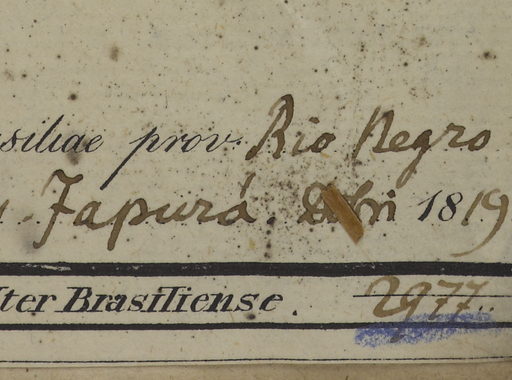 siliae prov. Rio Negro
Japurá. 1819
Iter Brasiliense.
2977.